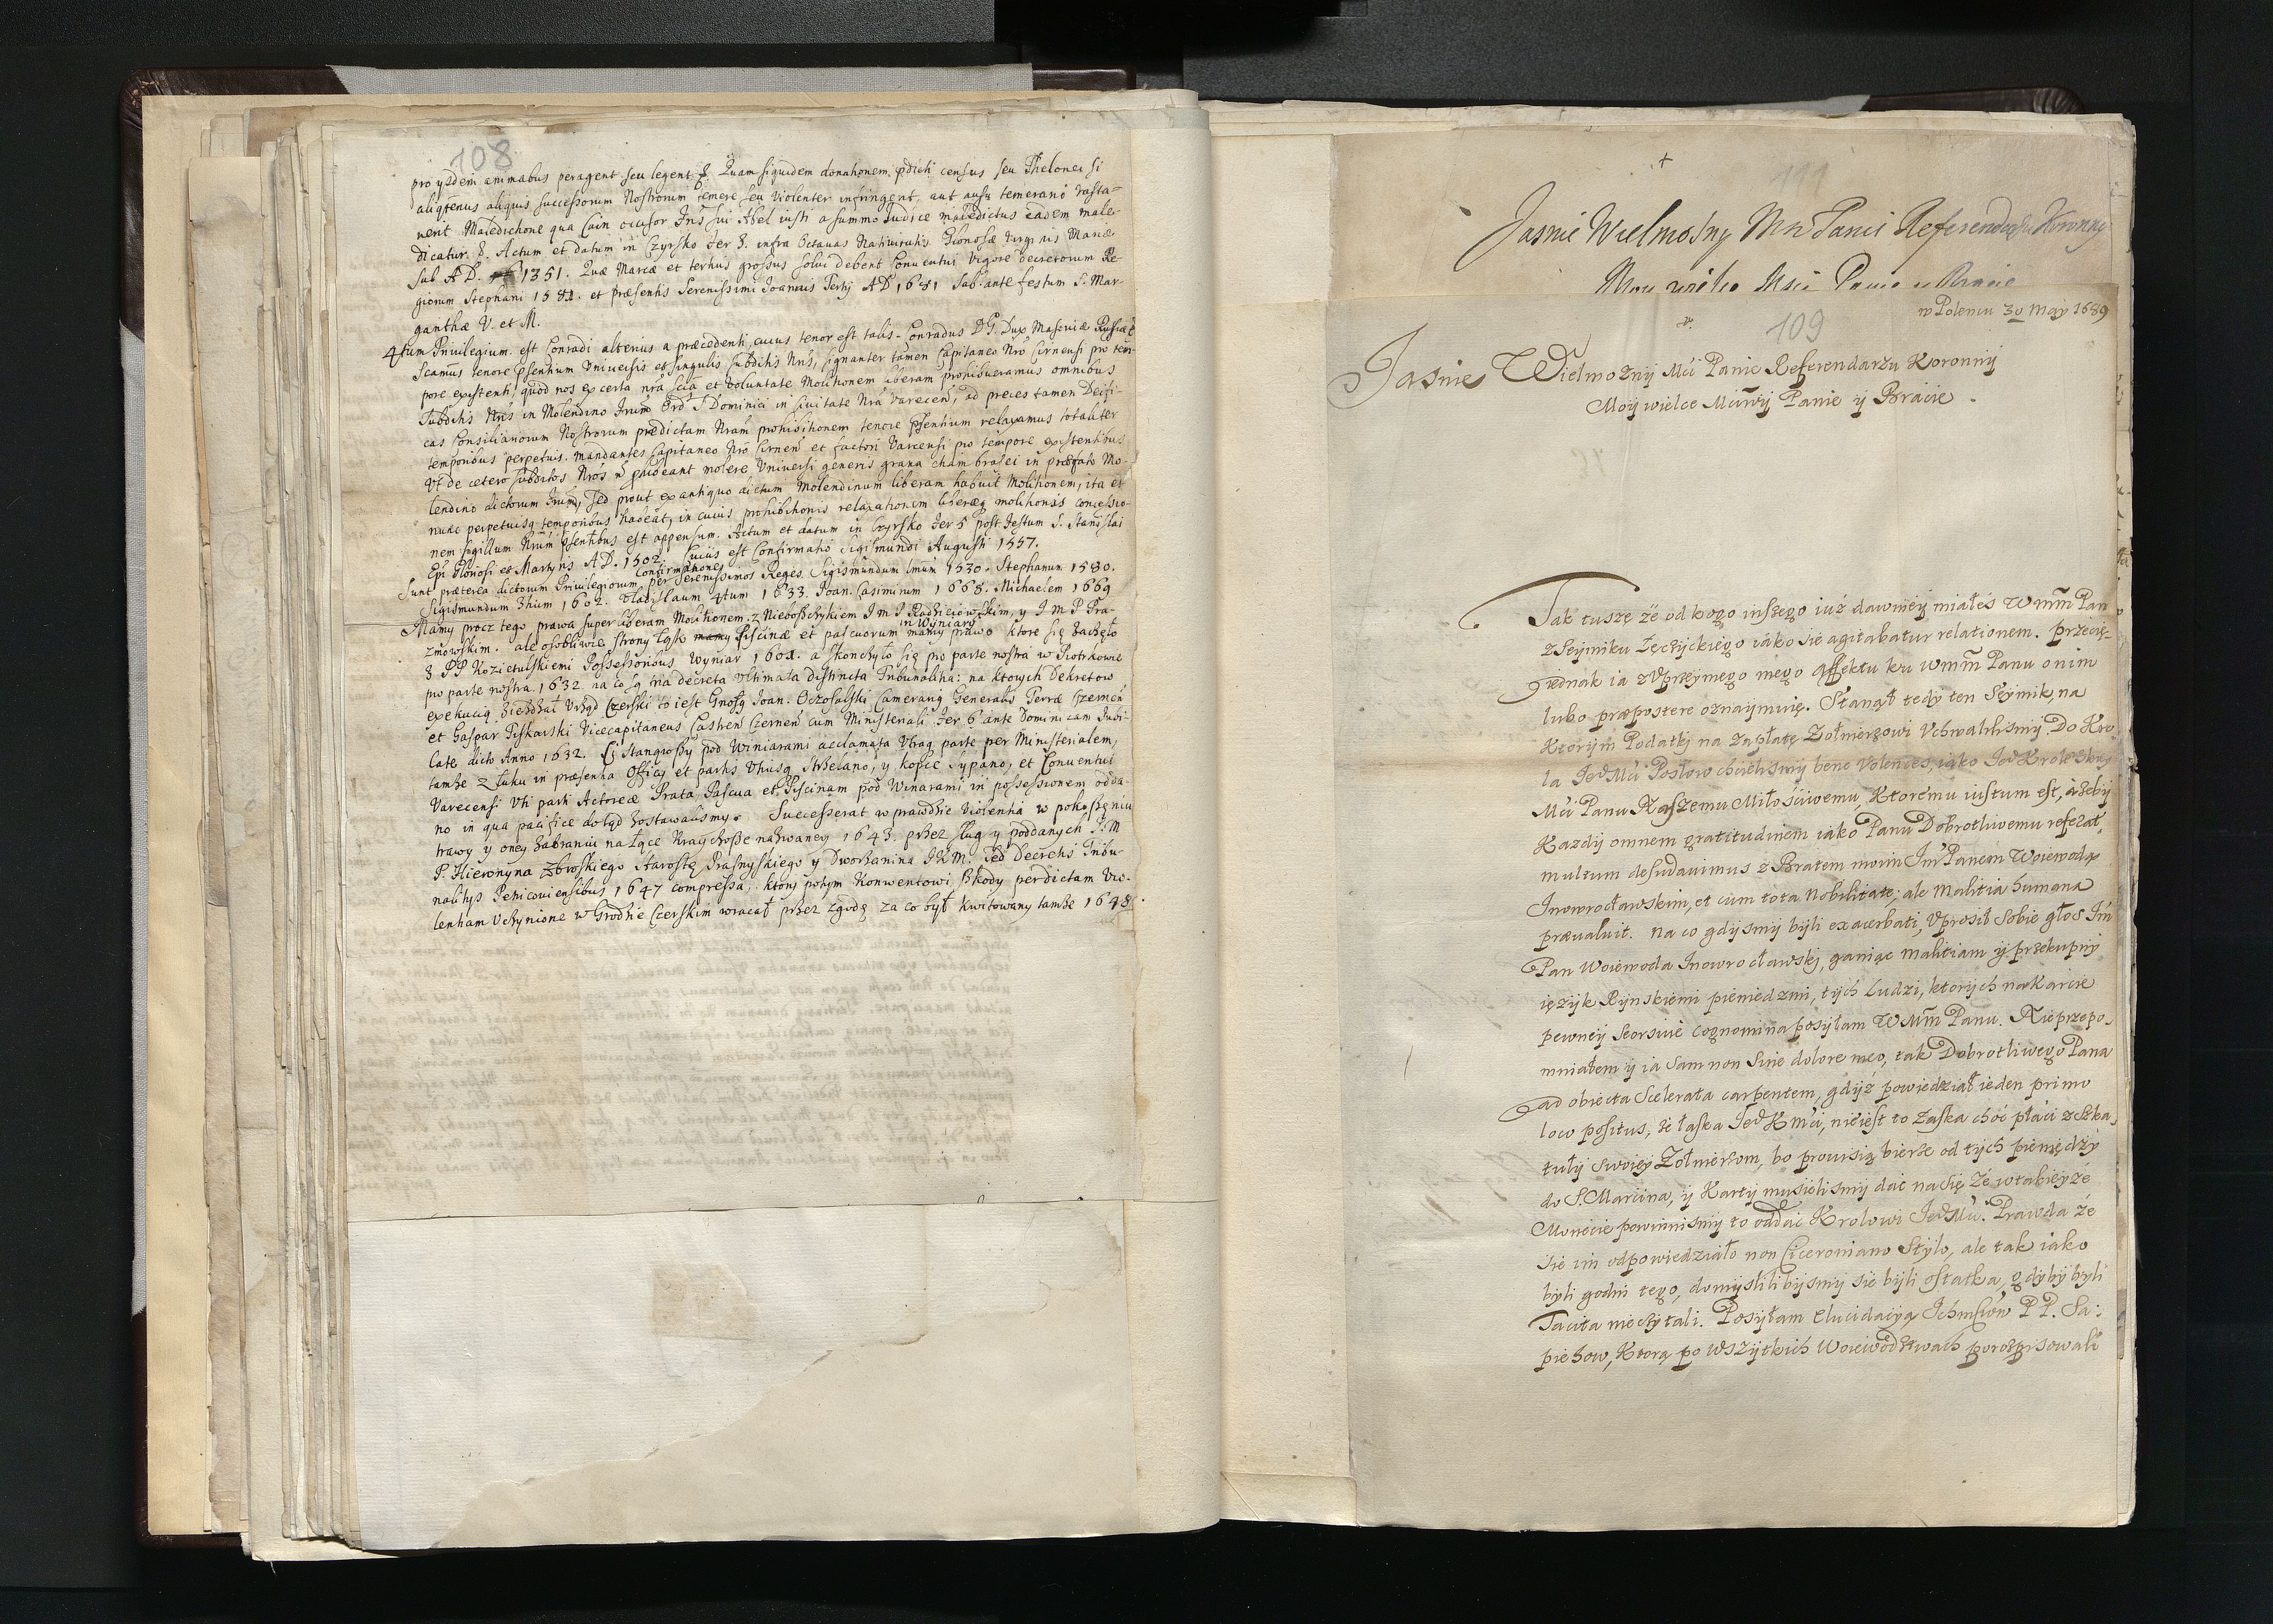 108
pro ysdem animabus peragent seu legent &. Quam siquidem donationem pdicti census seu Thelonei si
aliqtenus aliquis successorum Nostrorum temere seu violenter infringent, aut ausu temerario vasta-
verit Maledictione qua Cain occisor Fris sui Abel iusti a summo Iudice maledictus eadem male-
dicatur &. Actum et datum in Czyrsko fer 3. infra Octavas Nativitatis Gloriosæ Virginis Mariæ
sub A D. 1351. Quæ Marcæ et tertius grossus solui debent Conventui vigore decretorum Re-
giorum Stephani 1581. et præsentis Serenissimi Joannis Tertij A D 1681 Sab. ante festum S. Mar-
garithæ V. et M.
4tum Privilegium. est Conradi alterius a præcedenti, cuius tenor est talis. Conradus D G. Dux Masoviæ Russiæ &
Scamus tenore psentium Universis et singulis subditis Nris, signanter tamen Capitaneo Nro Cirnensi pro tem-
pore existenti, quod nos ex certa nra scia et voluntate Molitionem liberam prohibueramus omnibus
Subditis Nris in Molendino Frum Ord S Dominici in Civitate Nra Varecen, ad preces tamen Deifi-
cas Consiliariorum Nostrorum prædictam Nram prohibitionem tenore psentium relaxamus totaliter
temporibus perpetuis. mandantes Capitaneo Nro Cirnen et factori Varcensi pro tempore existentibus
Vt de cetero subditos Nros n phibeant molere Universi generis grana etiam brasei in præfato Mo-
lendino dictorum Frum, sed prout ex antiquo dictum Molendinum liberam habuit Molitionem, ita et
nunc perpetuisq temporibus habeat, in cuius prohibitionis relaxationem liberæq molitionis concessio-
nem sigillum Nrum psentibus est appensum. Actum et datum in Czyrsko fer 5 post festum S. Stanislai
Epi Gloriosi et Martyris A D. 1502. Cuius est Confirmatio Sigismundi Augusti 1557.
Sunt præterea dictorum Privilegiorum Confirmationes per Serenissimos Reges Sigismundum Imum 1530. Stephanum 1580.
Sigismundum 3tium 1602. Vladislaum 4tum 1633. Joan. Casimirum 1668. Michaelem 1669
Mamy procz tego prawa super liberam Molitionem. z Nieboszczykiem I m P Radzieiowskim, y I M P Gra-
zmowskim. ale osobliwie strony Łąk piscinæ et pascuorum in Winiary mamy prawo ktore się zaczęło
z PP Kozietulskiemi Possessoribus Wyniar 1601. a skonczyło się pro parte nostra w Piotrkowie
pro parte nostra. 1632 na co są tria decreta ultimata distincta Tribunalitia: na ktorych dekretow
exekucią ziezdzał Urząd Czerski to iest Gnosg Joan. Oczosalski Camerarg Generalis Terræ Czernen
et Gaspar Piskarski Vicecapitaneus Castren Czernen cum Ministeriali. fer 6 ante Dominicam Iubi-
late dicto Anno 1632. tamze z Łuku in præsentia Officij et partis Utriusq Strzelano, y kopce sypano, et Conventui
Varecensi uti parti Actoreæ Prata Pascua et Piscinam pod Winarami in possessionem odda-
no in qua pacifice dotąd zostawalismy. Successerat w prawdzie violentia w pokoszeniu
trawy y oney zabraniu na łące Kraychosze nazwaney 1643. przez sług y poddanych I. M
P. Hieronyma Zbroskiego Starostę Prasnyskiego y Dworzanina I K M. sed Decretis Tribu-
nalitys Petricoviensibus 1647 compressa, ktory potym Konwentowi szkody per dictam vio-
lentiam vczynione w Grodzie Czerskim wracał przez zgodę za co był kwitowany tamze 1648.
111
Jasnie Wielmozny Mci Panie Referendarzu Koronny
Moy wielce Mci Panie y Bracie
w Poleniu 30 May 1689
109
Jasnie Wielmoznij Mci Panie Referendarzu Koronnij
Moij wielce Mciwij Panie ij Bracie.
Tak tuszę że od kogo inszego iuż dawnieij miałeś W mm Pan
z Seijmiku Łęczijckiego iako sie agitabatur relationem. Przecię-
iednak ia z Vprzeijmego mego affektu ku W mm Panu o nim
lubo præpostere oznaijmuię. Stanął tedij ten Seijmik, na
Ktorijm Podatkj na Zapłatę Zołnierzowi Vchwalilismij. Do Kro-
la Je Mci Posłow chcielismij bene volentes, iako Je Krolewskiej
Mci Panu Naszemu Miłościwemu, Ktoremu iustum est, ażebij
Kazdij omnem gratitudinem iako Panu Dobrotliwemu referat,
multum desudavimus z Bratem moim Jm Panem Woiewodą
Inowrocławskim, et cum tota Nobilitate; ale Malitia humana
prævaluit. Na co gdijsmij bijli exacerbati, Vprosił sobie głos Jm
Pan Woiewoda Inowrocławskj, ganiąc malitiam ij przekupnij
ięzijk Rijnskiemi pieniedzmi, tijch Ludzi, ktorijch na Karcie
pewneij Seorsive cognomina posijłam W Mm Panu. Nie przepo-
mniałem ij ia Sam non Sine dolore meo, tak Dobrotliwego Pana
ad obiecta Scelerata carpentem, gdijż powiedział ieden primo
loco positus, że łaska Je K Mci, nie iest to łaska choć płaci z Szka-
tułij swoieij Zołnierzom, bo prowizią bierze od tijch pieniędzij
do S. Marcina, ij Kartij musielismij dać na się że w takieijże
Monecie powinnismij to oddać Krolowi Je Mci. Prawda że
sie im odpowiedziało non Ciceroniano Stijlo, ale tak iako
byli godni tego, domijslilibijsmij sie bijli ostatka, gdijbij byli
Tacita nie czijtali. Posijłam Elucidaciją Ichmciow P P. Sa:
piehow, Ktorą po wszijtkich Woiewodztwach porozpisowali